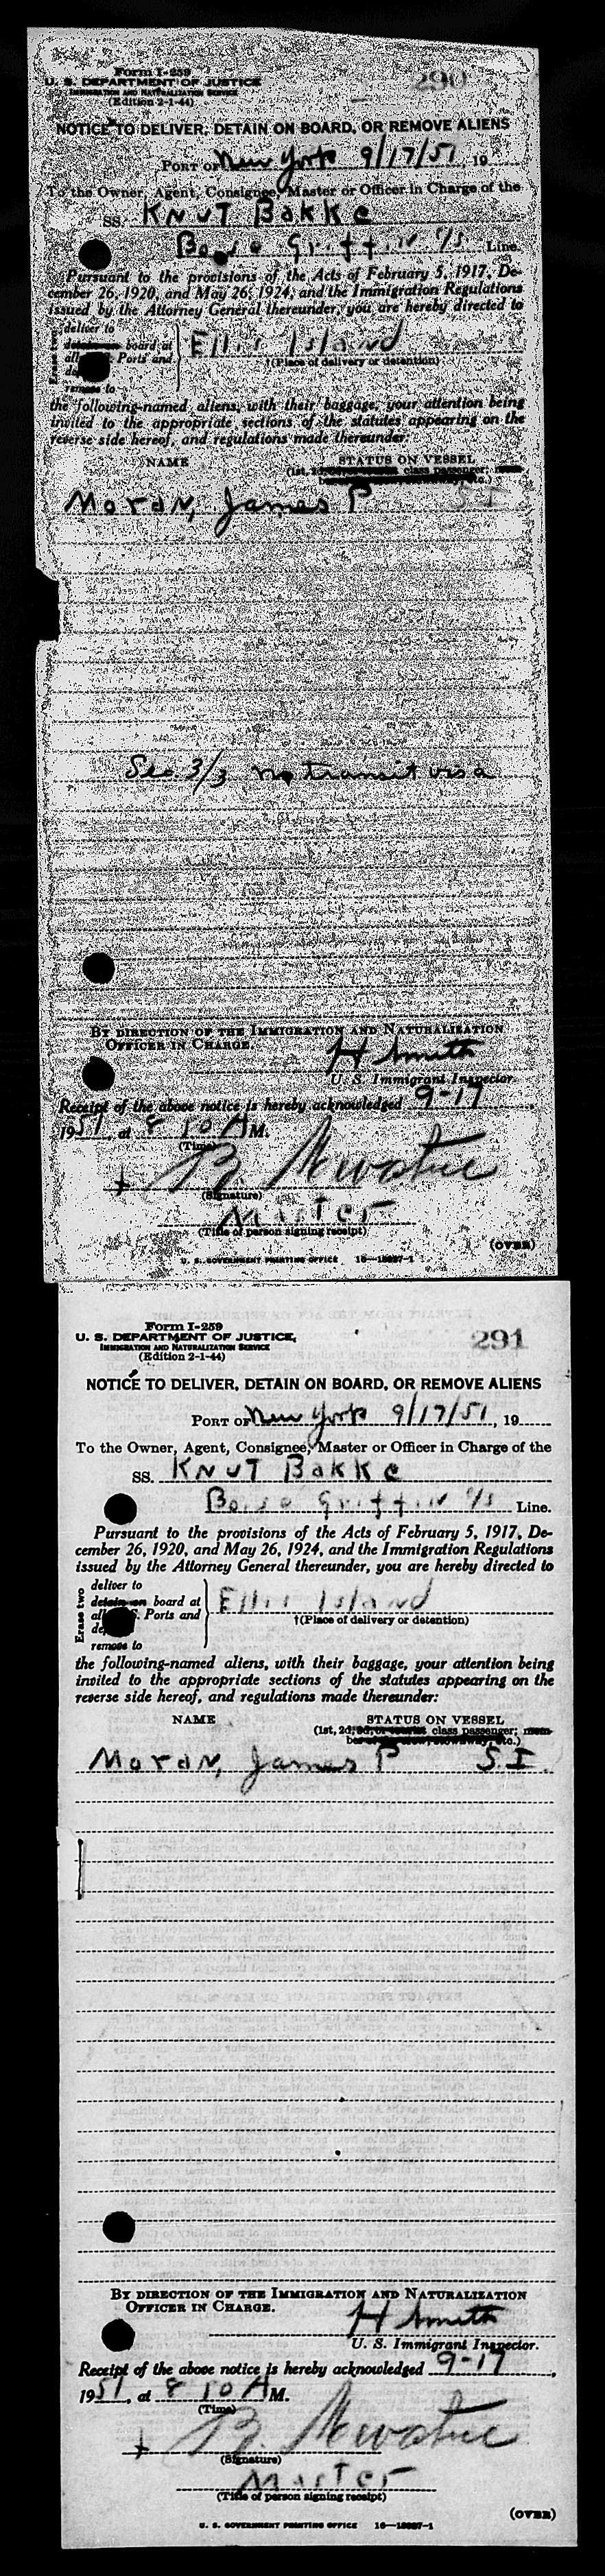 Form I-259
290
U. S. DEPARTMENT OF JUSTICE
IMMIGRATION AND NATURALIZATION SERVICE
(Edition 2-1-44)
NOTICE TO DELIVER, DETAIN ON BOARD, OR REMOVE ALIENS
PORT OF New York 9/17/51 19
To the Owner, Agent, Consignee, Master or Officer in Charge of the
SS. KNUT Bakke
Line.
Pursuant to the provisions of the Acts of February 5, 1917, De-
cember 26, 1920, and May 26, 1924, and the Immigration Regulations
issued by the Attorney General thereunder, you are hereby directed to
Erase two
deliver to
board at
all Ports and
remove to
Ellis Island
†(Place of delivery or detention)
the following-named aliens, with their baggage, your attention being
invited to the appropriate sections of the statutes appearing on the
reverse side hereof, and regulations made thereunder:
NAME STATUS ON VESSEL
(1st, 2d, class passenger;
Moran, James P S I
Sec 3/3 no transit visa
BY DIRECTION OF THE IMMIGRATION AND NATURALIZATION
OFFICER IN CHARGE.
H Smith
U. S. Immigrant Inspector.
Receipt of the above notice is hereby acknowledged 9-17
1951, at 8 10 A M.
(Time)
B.
(Signature)
Master
(Title of person signing receipt)
(OVER)
U. S. GOVERNMENT PRINTING OFFICE 16—13887-1
Form I-259
291
U. S. DEPARTMENT OF JUSTICE,
IMMIGRATION AND NATURALIZATION SERVICE
(Edition 2-1-44)
NOTICE TO DELIVER, DETAIN ON BOARD, OR REMOVE ALIENS
PORT OF New York 9/17/51, 19
To the Owner, Agent, Consignee, Master or Officer in Charge of the
SS. KNUT Bakke
Line.
Pursuant to the provisions of the Acts of February 5, 1917, De-
cember 26, 1920, and May 26, 1924, and the Immigration Regulations
issued by the Attorney General thereunder, you are hereby directed to
Erase two
deliver to
detain on board at
all Ports and
remove to
Ellis Island
†(Place of delivery or detention)
the following-named aliens, with their baggage, your attention being
invited to the appropriate sections of the statutes appearing on the
reverse side hereof, and regulations made thereunder:
NAME STATUS ON VESSEL
(1st, 2d, class passenger; mem-
Moran, James P S.I.
BY DIRECTION OF THE IMMIGRATION AND NATURALIZATION
OFFICER IN CHARGE.
H Smith
U. S. Immigrant Inspector.
Receipt of the above notice is hereby acknowledged 9-17,
1951, at 8 10 A M.
(Time)
B.
(Signature)
Master
(Title of person signing receipt)
(OVER)
U. S. GOVERNMENT PRINTING OFFICE 16—13887-1